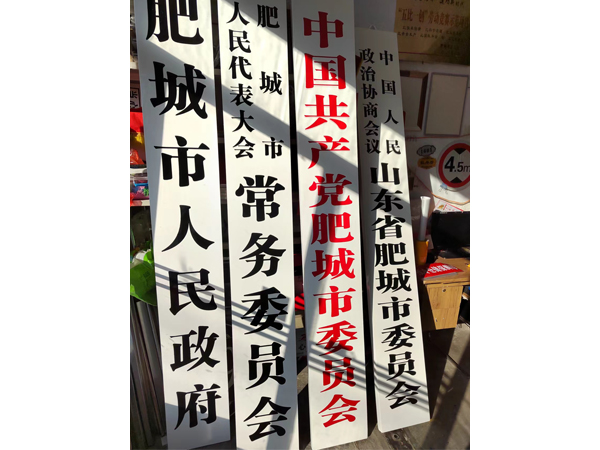 肥城市人民政府
肥城市
人民代表大会
常务委员会
中国共产党肥城市委员会
中国人民
政治协商会议
山东省肥城市委员会
4.5m